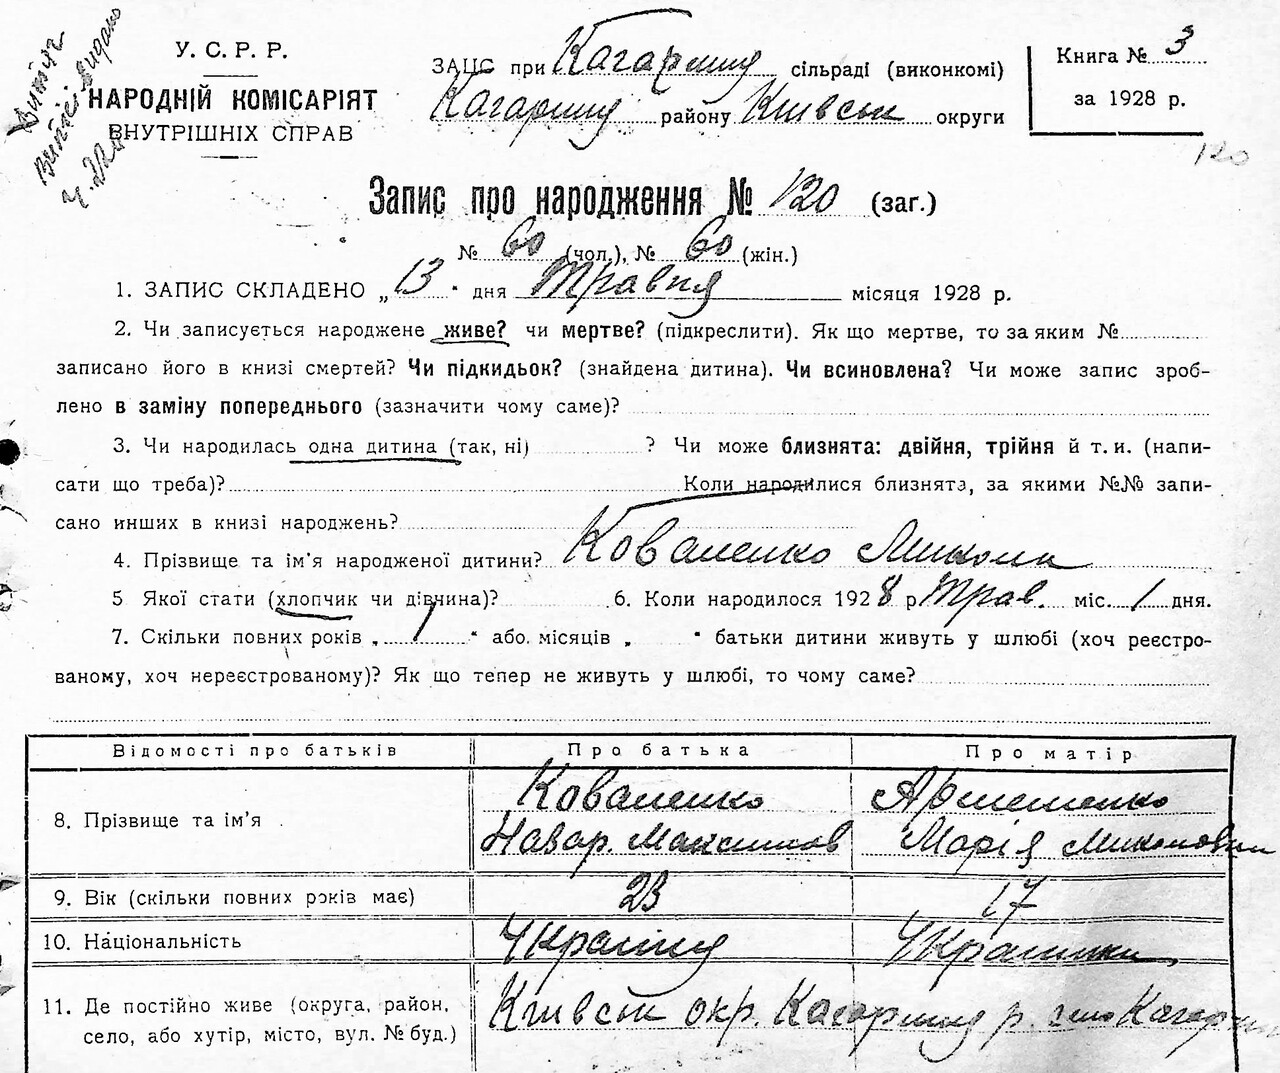 Витяг
У. С. Р. Р.
НАРОДНІЙ КОМІСАРІЯТ
ВНУТРІШНІХ СПРАВ
ЗАПИС при Кагарлиц сільраді (виконкомі)
Кагарлиц району Київськ округи
Книга № 3
за 1928 р.
120
Запис про народження № 120 (заг.)
№ 60 (чол.), № 60 (жін.)
1. ЗАПИС СКЛАДЕНО „13" дня Травня місяця 1928 р.
2. Чи записується народжене живе? чи мертве? (підкреслити). Як що мертве, то за яким №
записано його в книзі смертей? Чи підкидьок? (знайдена дитина). Чи всиновлена? Чи може запис зроб-
лено в заміну попереднього (зазначити чому саме)?
3. Чи народилась одна дитина (так, ні) ? Чи може близнята: двійня, трійня й т. и. (напи-
сати що треба)? Коли народилися близнята, за якими №№ запи-
сано инших в книзі народжень?
4. Прізвище та ім'я народженої дитини? Коваленко Микола
5 Якої стати (хлопчик чи дівчина)? 6. Коли народилося 1928 р Трав. міс. 1 дня.
7. Скільки повних років „ 1 " або місяців „ " батьки дитини живуть у шлюбі (хоч реєстро-
ваному, хоч нереєстрованому)? Як що тепер не живуть у шлюбі, то чому саме?
Відомості про батьків Про батька Про матір
8. Прізвище та ім'я Коваленко Назар. Максимов Артеменко Марія Миколаївн
9. Вік (скільки повних років має) 23 17
10. Національність Українц Українка
11. Де постійно живе (округа, район, Київськ окр. Кагарлиц р. село Кагарл
село, або хутір, місто, вул. № буд.)